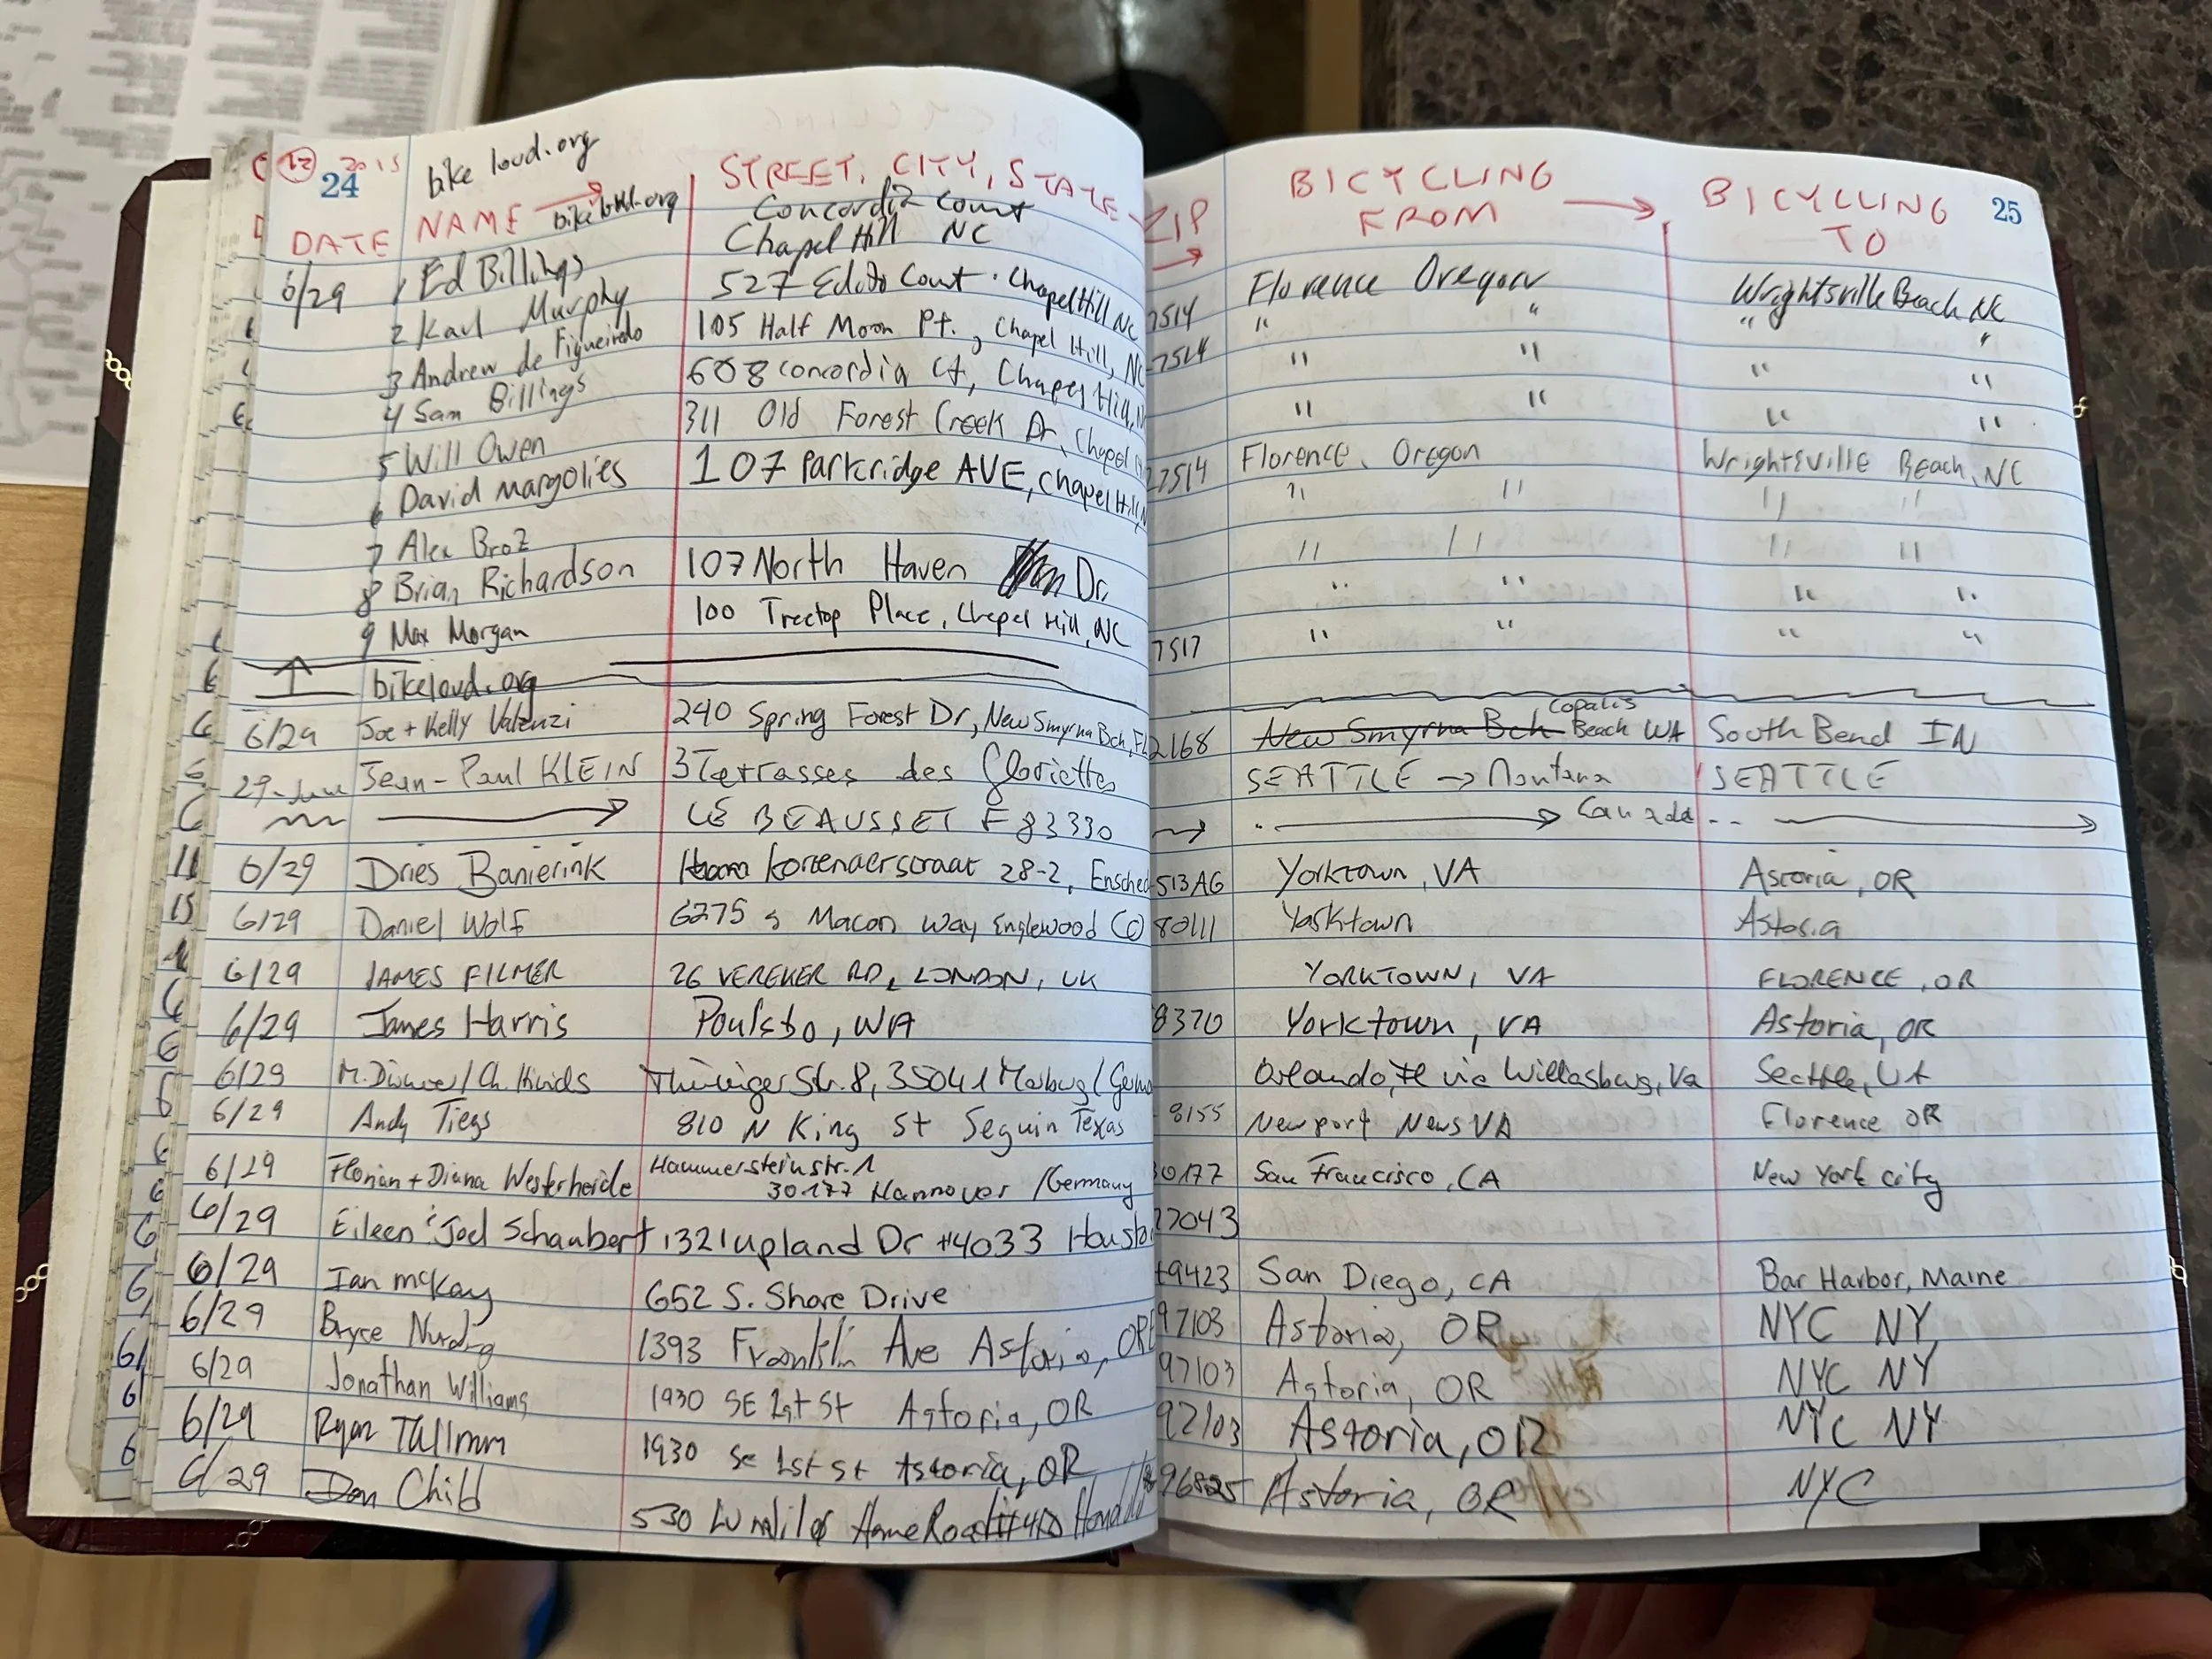 12 2015
24
bike loud.org
DATE NAME bikeloud.org STREET, CITY, STATE ZIP BICYCLING FROM BICYCLING TO 25
Concordia Court
Chapel Hill NC
6/29 1 Ed Billings Florence Oregon Wrightsville Beach NC
2 Karl Murphy 527 Court Chapel Hill NC 7514 " " " "
3 Andrew de Figueiredo 105 Half Moon Pt., Chapel Hill, NC 7514 " " " "
4 Sam Billings 608 Concordia Ct, Chapel Hill, N " " " "
5 Will Owen 311 Old Forest Creek Dr, Chapel Florence, Oregon Wrightsville Beach, NC
6 David Margolies 107 Parkridge AVE, Chapel Hill, 27514 " " " "
7 Alex Broz " " " "
8 Brian Richardson 107 North Haven Dr. " " " "
9 Max Morgan 100 Treetop Place, Chapel Hill, NC 7517 " " " "
bikeloud.org
6/29 Joe + Kelly Valenzi 240 Spring Forest Dr, New Smyrna Bch, FL 2168 New Smyrna Bch Copalis Beach WA South Bend IN
29-June Jean-Paul KLEIN 3 Terrasses des Gloriettes SEATTLE → Montana SEATTLE
LE BEAUSSET F 83330 → Canada
6/29 Dries Banierink Kortenaerstraat 28-2, Ensched 513AG Yorktown, VA Astoria, OR
6/29 Daniel Wolf 6275 S Macon Way Englewood CO 80111 Yorktown Astoria
6/29 JAMES FILMER 26 VEREKER RD, LONDON, UK YORKTOWN, VA FLORENCE, OR
6/29 James Harris Poulsbo, WA 8370 Yorktown, VA Astoria, OR
6/29 Thüringer Str. 8, 35041 Marburg / Germa Orlando, via Seattle,
6/29 Andy Tiegs 810 N King St Seguin Texas 8155 Newport News VA Florence OR
6/29 Florian + Diana Westerheide Hammersteinstr. 1
30177 Hannover / Germany 30177 San Francisco, CA New York city
6/29 Eileen & Joel Schaubert 1321 Upland Dr #4033 Housto 77043
6/29 Ian McKay 652 S. Shore Drive 49423 San Diego, CA Bar Harbor, Maine
6/29 Bryce Nurding 1393 Franklin Ave Astoria, OR 97103 Astoria, OR NYC NY
6/29 Jonathan Williams 1930 SE 1st St Astoria, OR 97103 Astoria, OR NYC NY
6/29 Ryan Tallman 1930 SE 1st St Astoria, OR 97103 Astoria, OR NYC NY
6/29 Dan Child 530 Home Road 96825 Astoria, OR NYC